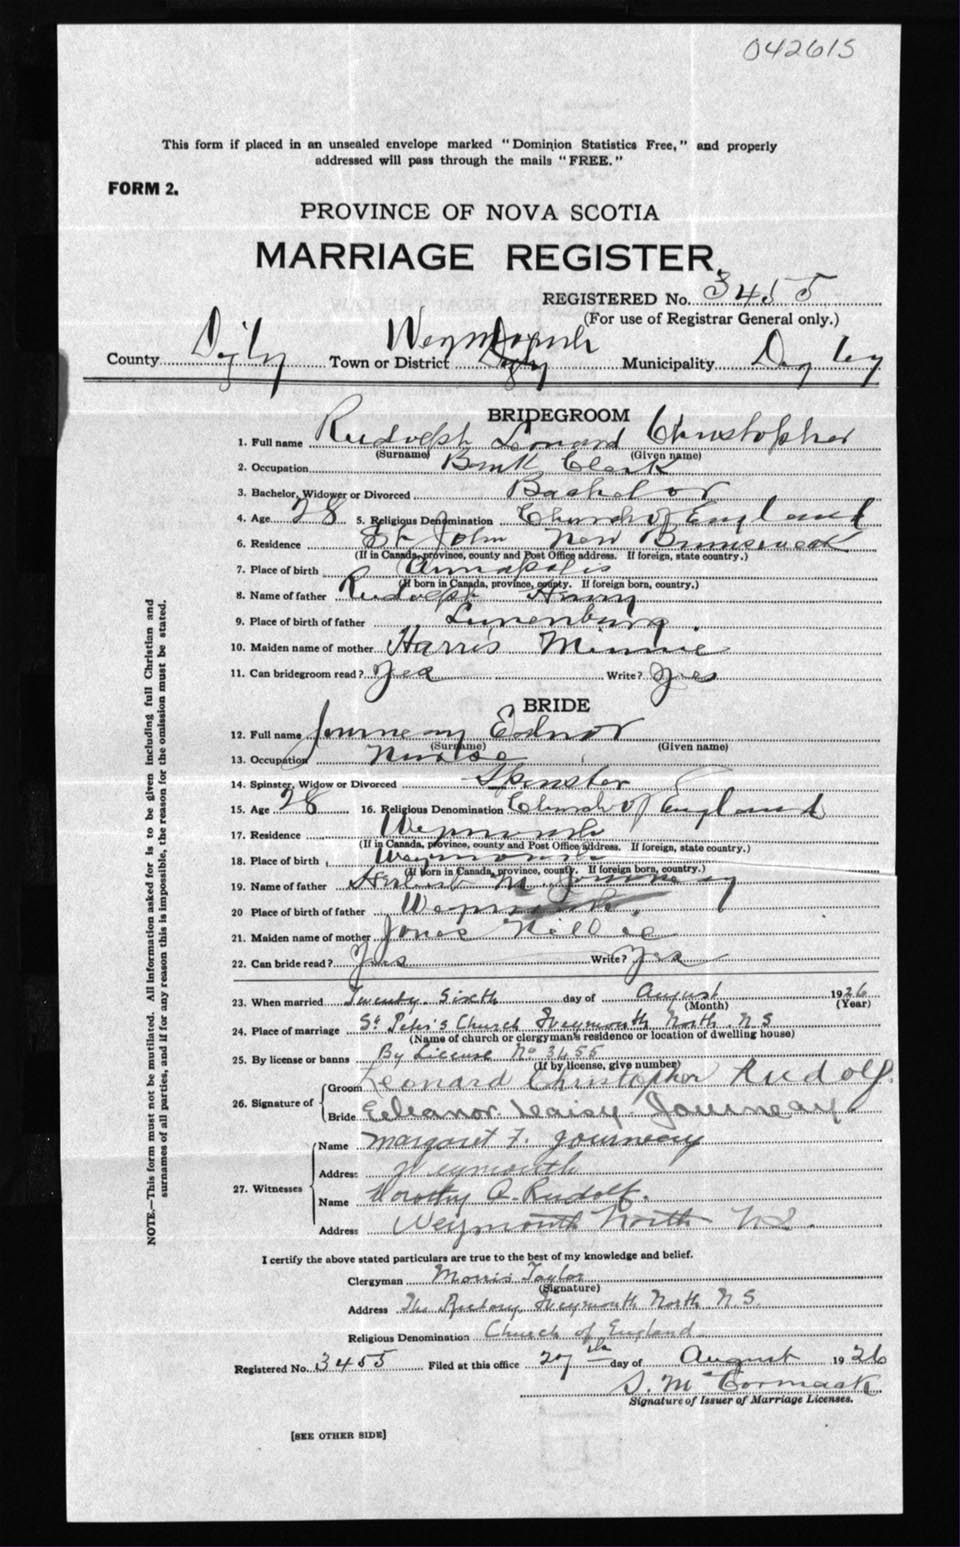 042615
This form if placed in an unsealed envelope marked "Dominion Statistics Free," and properly
addressed will pass through the mails "FREE."
FORM 2.
PROVINCE OF NOVA SCOTIA
MARRIAGE REGISTER.
REGISTERED No. 3455
(For use of Registrar General only.)
County Digby Town or District Weymouth Digby Municipality Digby
BRIDEGROOM
1. Full name Rudolph Leonard Christopher
(Surname) (Given name)
2. Occupation Bank Clerk
3. Bachelor, Widower or Divorced Bachelor
4. Age 28 5. Religious Denomination Church of England
6. Residence St John New Brunswick
(If in Canada, province, county and Post Office address. If foreign, state country.)
7. Place of birth Annapolis
(If born in Canada, province, county. If foreign born, country.)
8. Name of father Rudolph Henry
9. Place of birth of father Lunenburg.
10. Maiden name of mother Harris Minnie
11. Can bridegroom read? Yes Write? Yes
BRIDE
12. Full name Journeay Ednor
(Surname) (Given name)
13. Occupation Nurse
14. Spinster, Widow or Divorced Spinster
15. Age 28 16. Religious Denomination Church of England
17. Residence Weymouth
(If in Canada, province, county and Post Office address. If foreign, state country.)
18. Place of birth Weymouth
(If born in Canada, province, county. If foreign born, country.)
19. Name of father Herbert M. Journeay
20 Place of birth of father Weymouth.
21. Maiden name of mother Jones Nellie
22. Can bride read? Yes Write? Yes
23. When married Twenty Sixth day of August 1926
(Month) (Year)
24. Place of marriage St Peter's Church Weymouth North N.S.
(Name of church or clergyman's residence or location of dwelling house)
25. By license or banns By License No 3455
(If by license, give number)
26. Signature of
Groom Leonard Christopher Rudolf.
Bride Eleanor Daisy Journeay
27. Witnesses
Name Margaret F. Journeay
Address Weymouth
Name Dorothy A. Rudolf.
Address Weymouth North N.S.
I certify the above stated particulars are true to the best of my knowledge and belief.
Clergyman Morris Taylor
(Signature)
Address The Rectory, Weymouth North N.S.
Religious Denomination Church of England
Registered No. 3455 Filed at this office 27th day of August 1926
S. McCormack
Signature of Issuer of Marriage Licenses.
[SEE OTHER SIDE]
NOTE.—This form must not be mutilated. All information asked for is to be given including full Christian and
surnames of all parties, and if for any reason this is impossible, the reason for the omission must be stated.